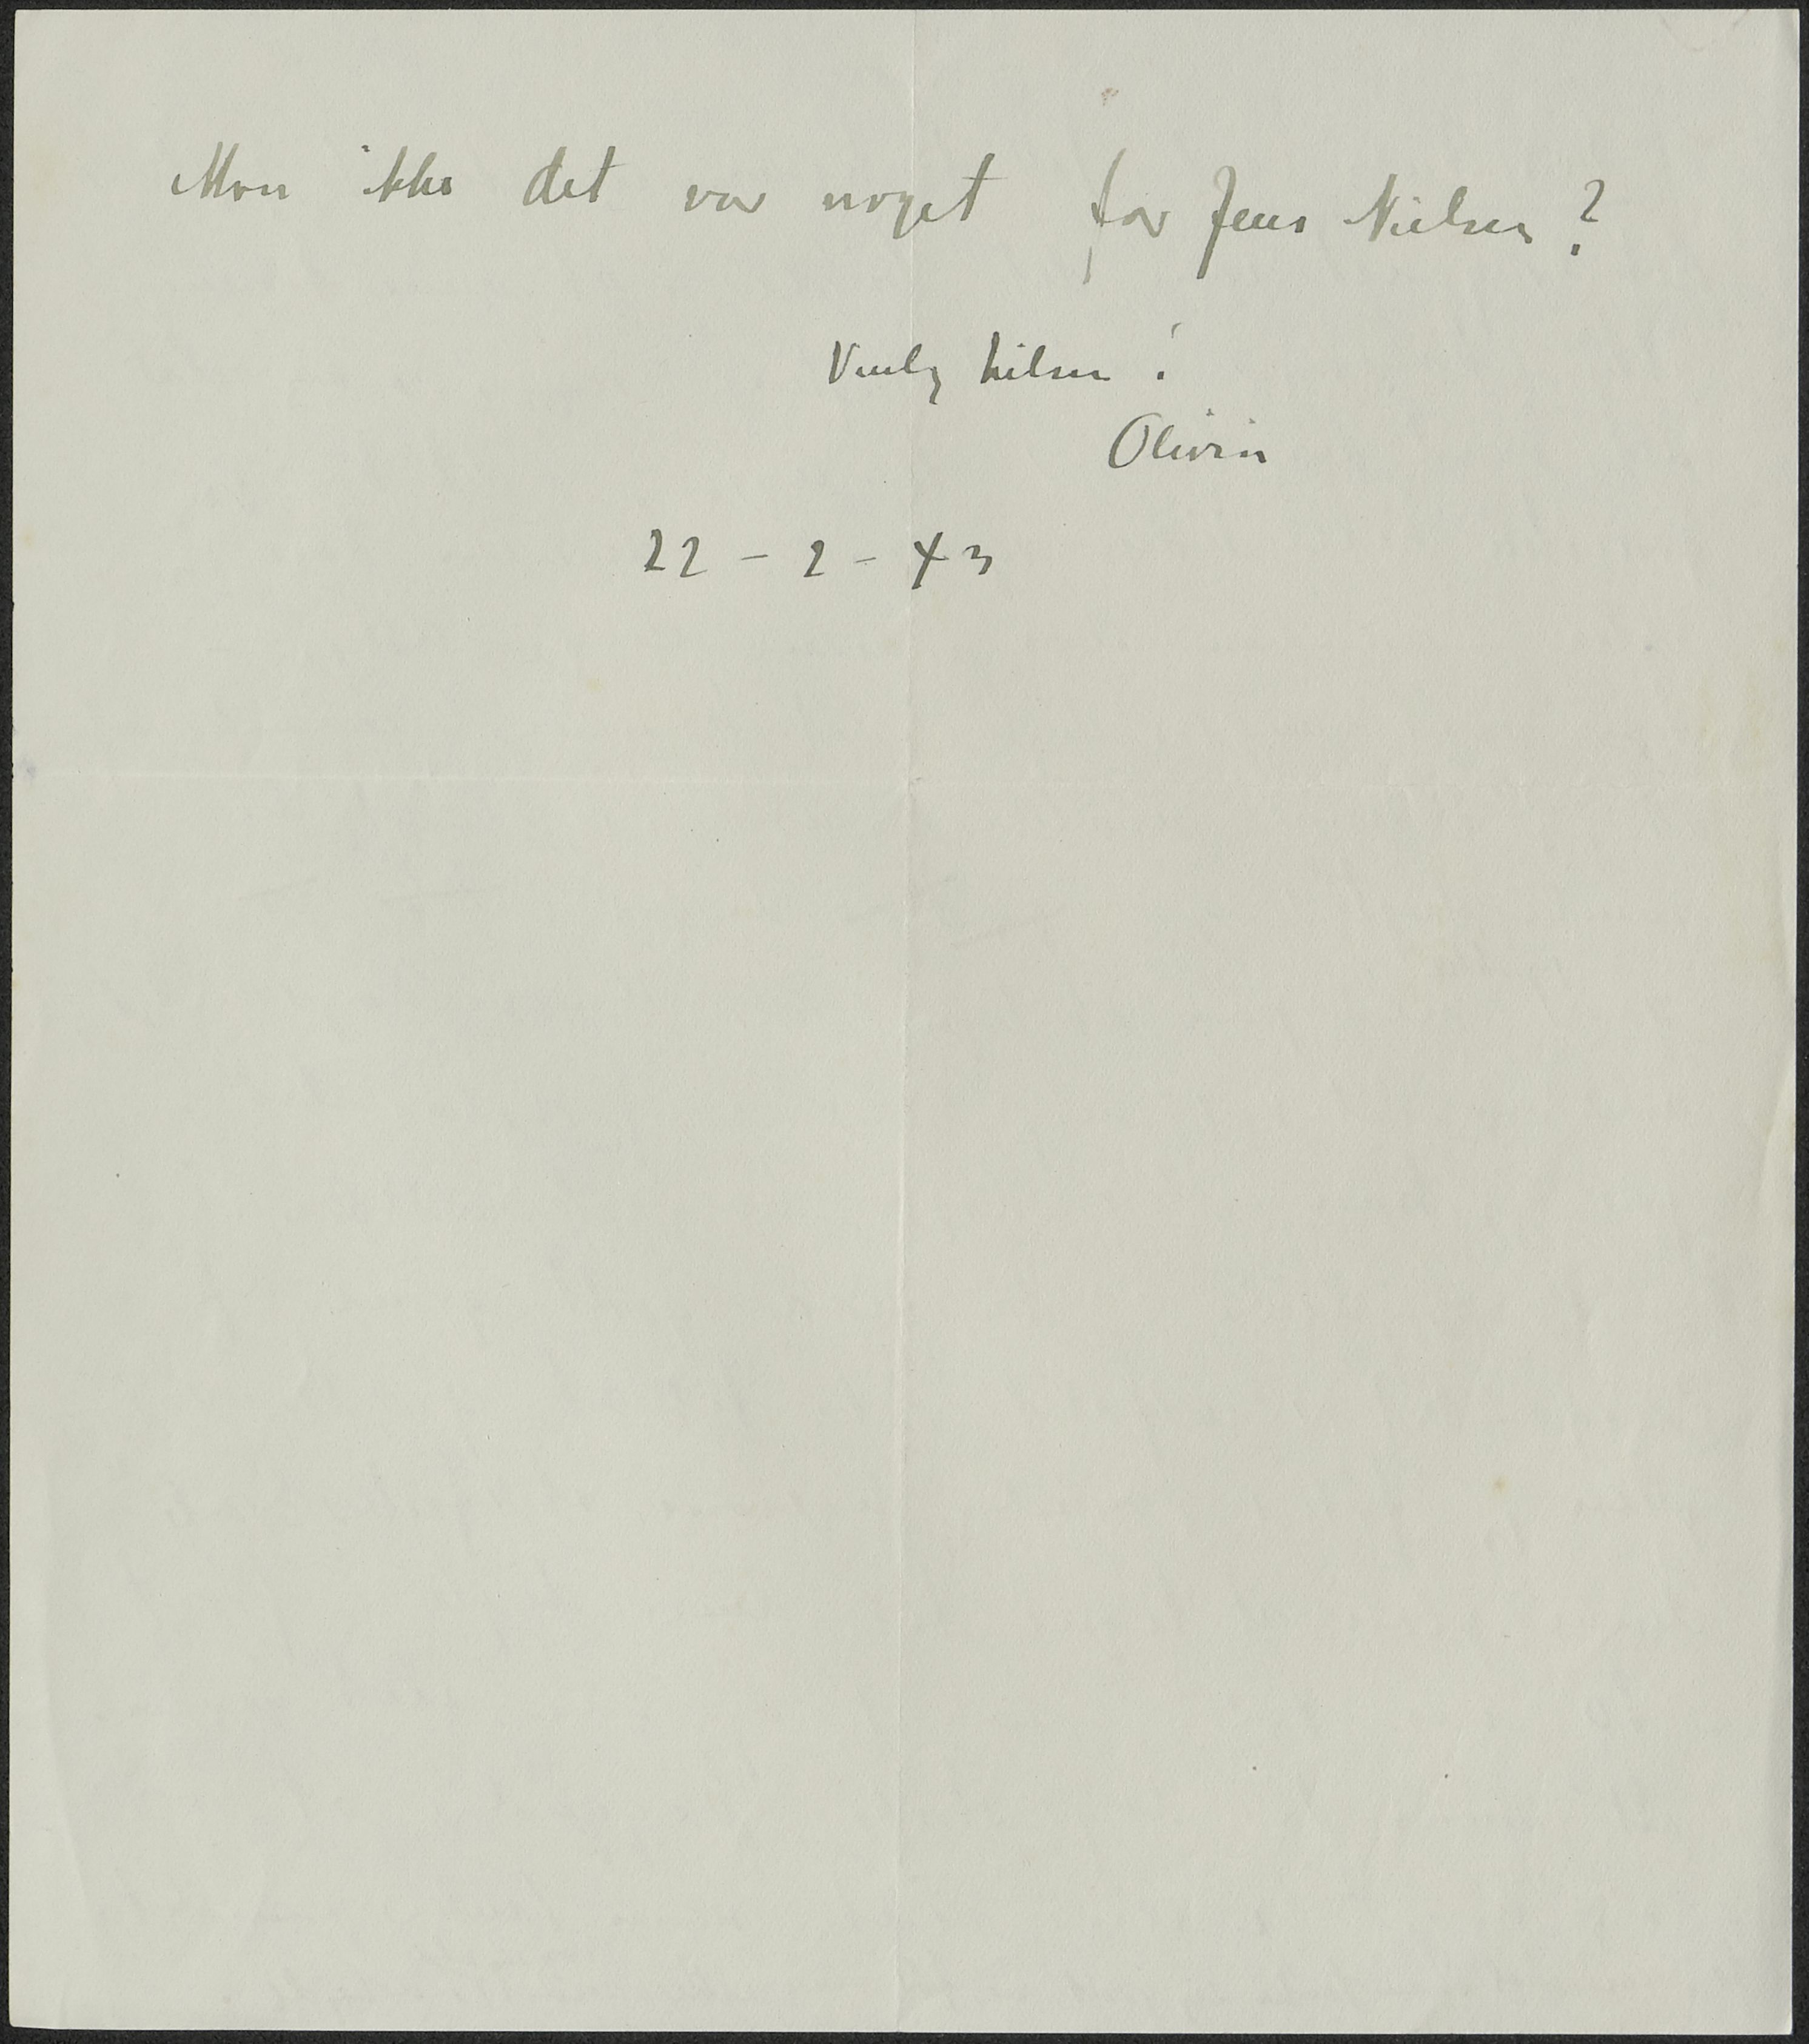 Mon ikke det var noget for Jens Nielsen?
Venlig hilsen!
Olivia
22 - 2 - 43